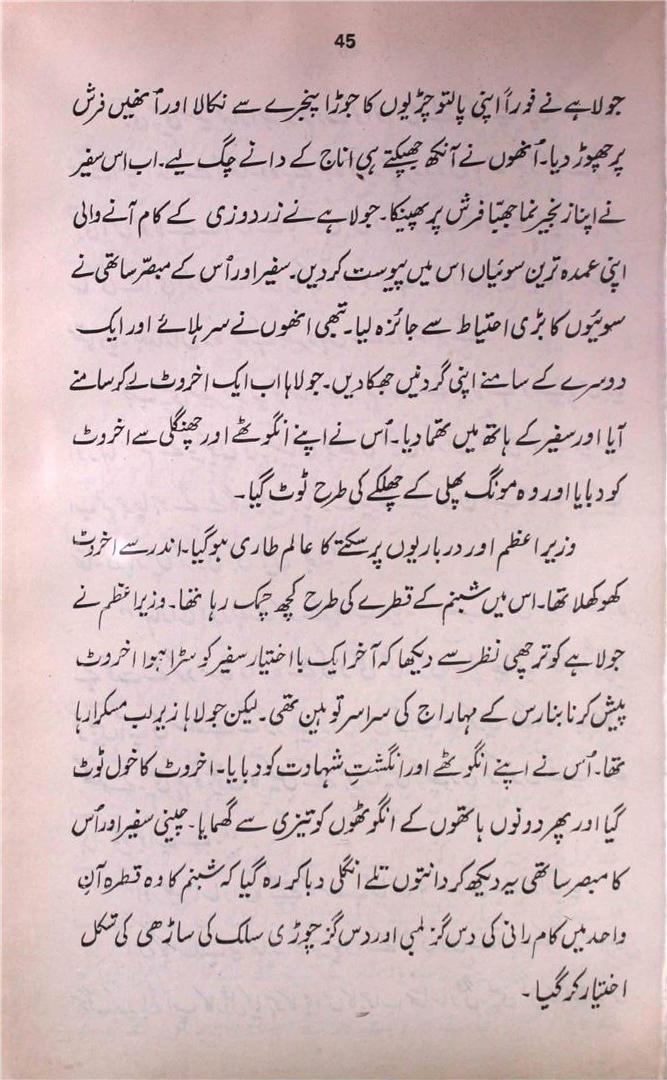 45
جولاہے نے فوراً اپنی پالتو چڑیوں کا جوڑا پنجرے سے نکالا اور اُنھیں فرش
پر چھوڑ دیا۔ اُنھوں نے آنکھ جھپکتے ہی اناج کے دانے چگ لیے۔ اب اس سفیر
نے اپنا زنجیر نما جھبّا فرش پر پھینکا۔ جولاہے نے زردوزی کے کام آنے والی
اپنی عمدہ ترین سوئیاں اس میں پیوست کر دیں۔ سفیر اور اُس کے مبصّر ساتھی نے
سوئیوں کا بڑی احتیاط سے جائزہ لیا۔ تبھی انھوں نے سر ہلائے اور ایک
دوسرے کے سامنے اپنی گردنیں جھکا دیں۔ جولاہا اب ایک اخروٹ لے کر سامنے
آیا اور سفیر کے ہاتھ میں تھما دیا۔ اُس نے اپنے انگوٹھے اور چھنگلی سے اخروٹ
کو دبایا اور وہ مونگ پھلی کے چھلکے کی طرح ٹوٹ گیا۔
وزیر اعظم اور درباریوں پر سکتے کا عالم طاری ہو گیا۔ اندر سے اخروٹ
کھوکھلا تھا۔ اس میں شبنم کے قطرے کی طرح کچھ چمک رہا تھا۔ وزیر اعظم نے
جولاہے کو ترچھی نظر سے دیکھا کہ آخر ایک با اختیار سفیر کو سڑا ہوا اخروٹ
پیش کرنا بنارس کے مہاراج کی سراسر توہین تھی۔ لیکن جولاہا زیرِ لب مسکرا رہا
تھا۔ اُس نے اپنے انگوٹھے اور انگشتِ شہادت کو دبایا۔ اخروٹ کا خول ٹوٹ
گیا اور پھر دونوں ہاتھوں کے انگوٹھوں کو تیزی سے گھمایا۔ چینی سفیر اور اُس
کا مبصر ساتھی یہ دیکھ کر دانتوں تلے انگلی دبا کر رہ گیا کہ شبنم کا وہ قطرہ آنِ
واحد میں کام رانی کی دس گز لمبی اور دس گز چوڑی سلک کی ساڑھی کی شکل
اختیار کر گیا۔